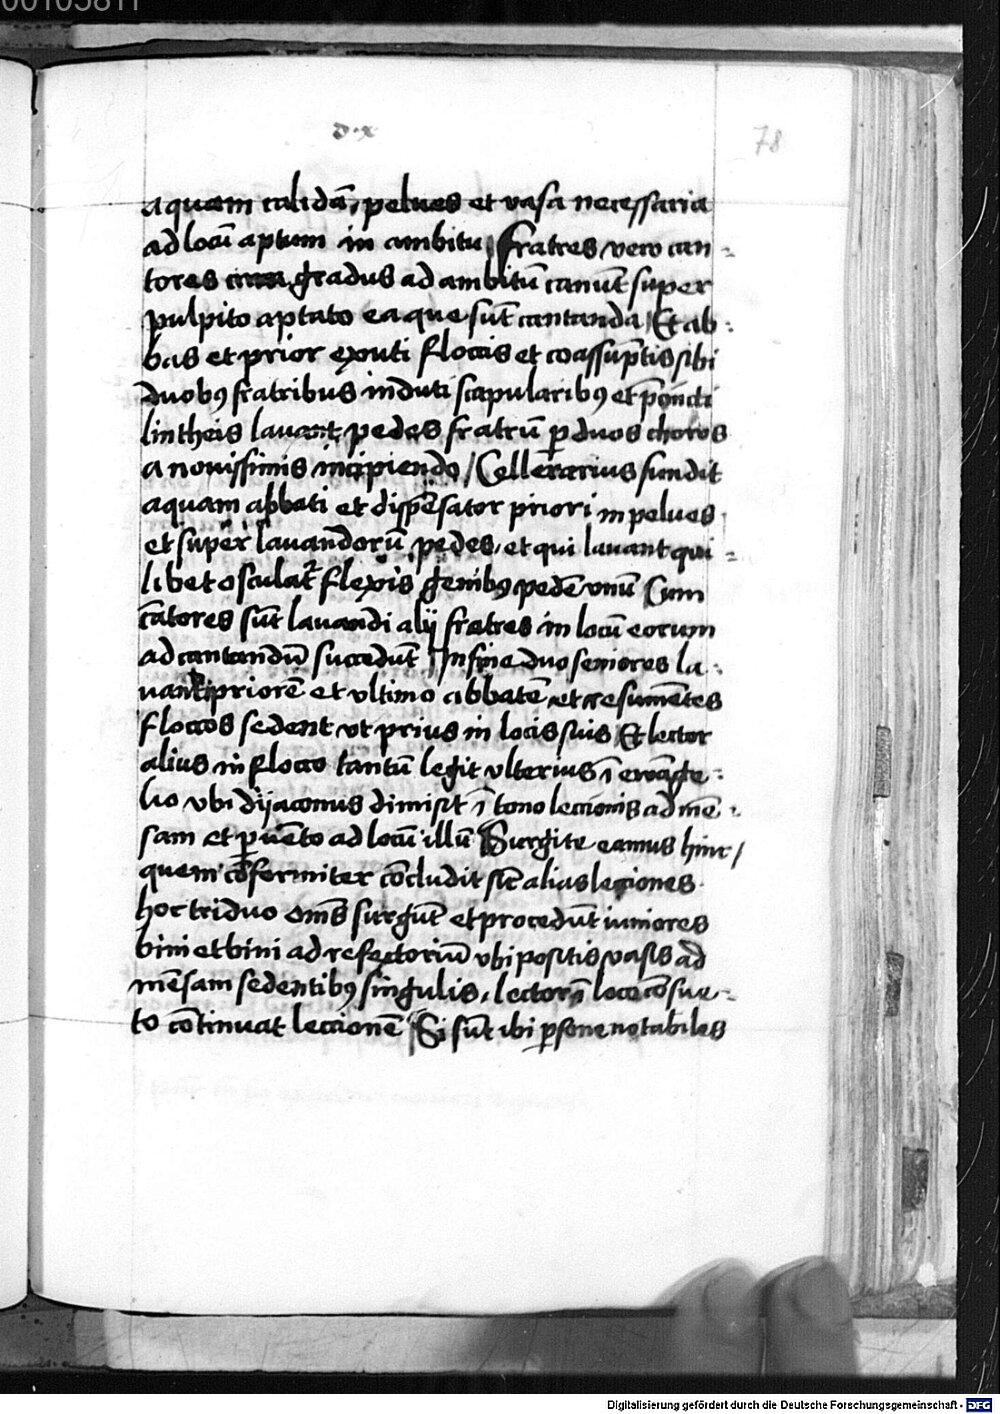 00105811
d·x
78
aquam calidā, pelues et vasa necessaria
ad locū aptum in ambitu, fratres vero can-
tores gradus ad ambitū canūt super
pulpito aptato ea que sūt cantanda / Et ab-
bas et prior exuti floccis et coassūptis sibi
duobꝯ fratribus induti scapularibꝯ et p̄cīcti
lintheis lauant pedes fratrū ꝑ duos choros
a nouissimis incipiendo / Cellerarius fundit
aquam abbati et dispēsator priori in pelues
et super lauandorū pedes, et qui lauant qui-
libet osculat̄ flexis genibꝯ pedē vnū Cum
cātores sūt lauandi alij fratres in locū eorum
ad cantandū succedūt / In fine duo seniores la-
uant priorē et vltimo abbatē et resumētes
floccos sedent vt prius in locis suis / Et lector
alius in flocco tantū legit vlterius ī ewāge-
lio vbi dyaconus dimisit ī tono lectionis ad mē-
sam et ꝑuēto ad locū illū Surgite eamus hinc /
quem cōformiter cōcludit sic̄ alias lectiones
hoc triduo om̄s surgūt et procedūt iuniores
bini et bini ad refectoriū vbi positis vasis ad
mēsam sedentibꝯ singulis, lector ī loco cōsue-
to cōtinuat lectionē / Si sūt ibi ꝑsone notabiles
Digitalisierung gefördert durch die Deutsche Forschungsgemeinschaft - DFG